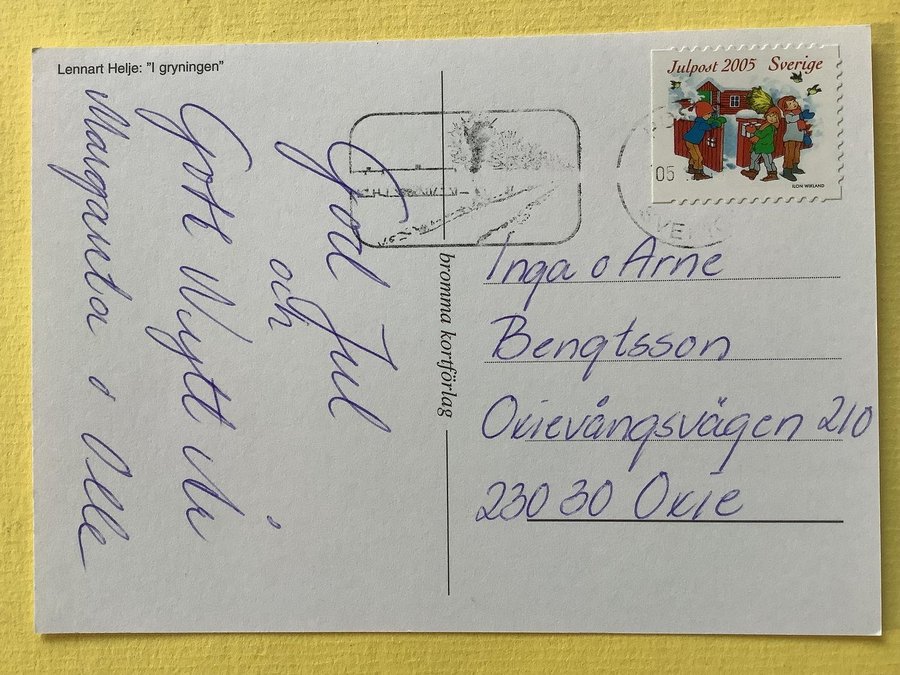 Lennart Helje: "I gryningen"
God Jul
och
Gott Nytt År
Margareta o Olle
bromma kortförlag
Julpost 2005 Sverige
ILON WIKLAND
05
Inga o Arne
Bengtsson
Oxievångsvägen 210
230 30 Oxie